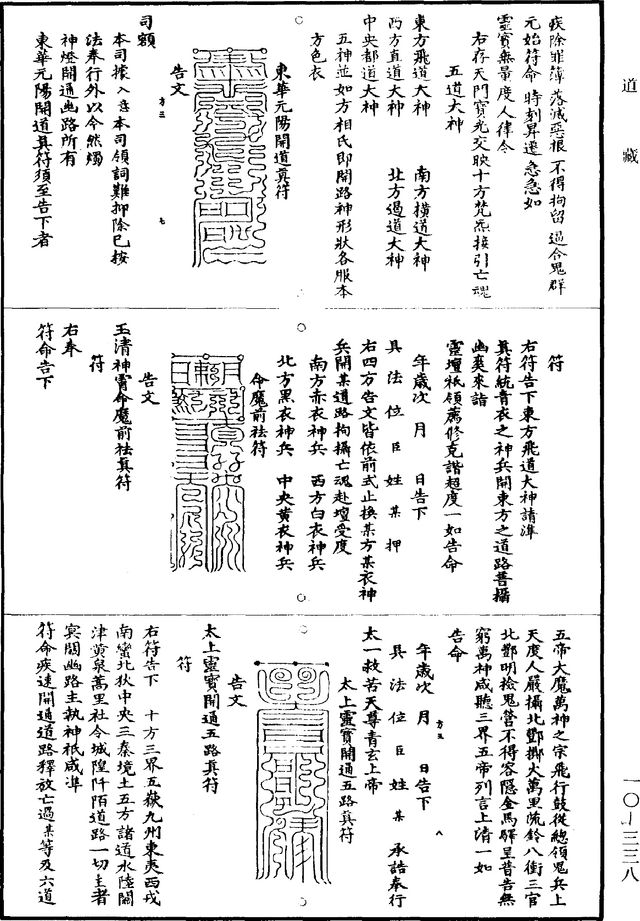 道藏
疾除罪簿落滅惡根不得拘留逼合鬼群
元始符命時刻昇遷急急如
靈寶無量度人律令
右存天門寶光交映十方梵炁接引亡魂
五道大神
東方飛道大神　南方橫道大神
西方直道大神　北方過道大神
中央都道大神
五神並如方相氏即開路神形狀各服本
方色衣
東華元陽開道真符
告文
司額
本司據入意本司領詞難抑除已按
法奉行外以今然燭
神燈開通幽路所有
東華元陽開道真符須至告下者
方三　七
符
右符告下東方飛道大神請準
真符統青衣之神兵開東方之道路普攝
幽爽來詣
靈壇祗領薦修克諧超度一如告命
年歲次　月　日告下
具法位臣姓某押
右四方告文皆依前式止換某方某衣神
兵開某道路拘攝亡魂赴壇受度
南方赤衣神兵　西方白衣神兵
北方黑衣神兵　中央黄衣神兵
命魔前祛符
告文
玉清神霄命魔前祛真符
符
右奉
符命告下
五帝大魔萬神之宗飛行鼓從總領鬼兵上
天度人嚴攝北酆擲火萬里流鈴八衝三官
北酆明檢鬼營不得容隱金馬驛呈普告無
窮萬神咸聽三界五帝列言上清一如
告命
年歲次　月　日告下
方三　八
具法位臣姓某承誥奉行
太一救苦天尊青玄上帝
太上靈寶開通五路真符
告文
太上靈寶開通五路真符
符
右符告下　十方三界五嶽九州東夷西戎
南蠻北狄中央三秦境土五方諸道水陸關
津黃泉蒿里社令城隍阡陌道路一切主者
冥關幽路主執神祇咸準
符命疾速開通道路釋放亡過某等及六道
一〇—三三八